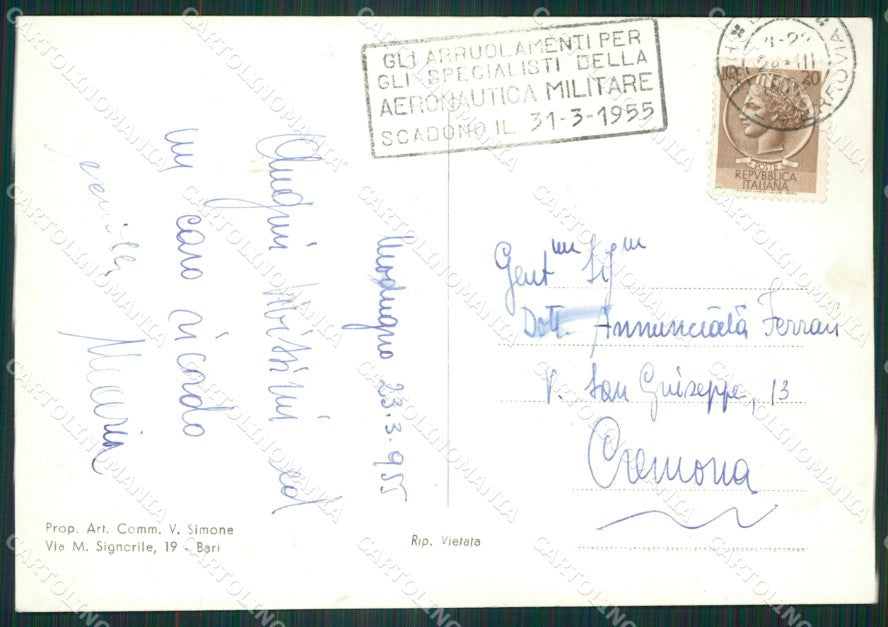 GLI ARRUOLAMENTI PER
GLI SPECIALISTI DELLA
AERONAUTICA MILITARE
SCADONO IL 31-3-1955
FERROVIA
LIRE 20
POSTE
REPVBBLICA
ITALIANA
Modugno 23.3.955
Auguri vivissimi ed
un caro ricordo
Maria
Gent.ma Sig.na
Dott. Annunciata Ferrari
V. San Giuseppe, 13
Cremona
Prop. Art. Comm. V. Simone
Via M. Signorile, 19 - Bari
Rip. Vietata
CARTOLINOMANIA